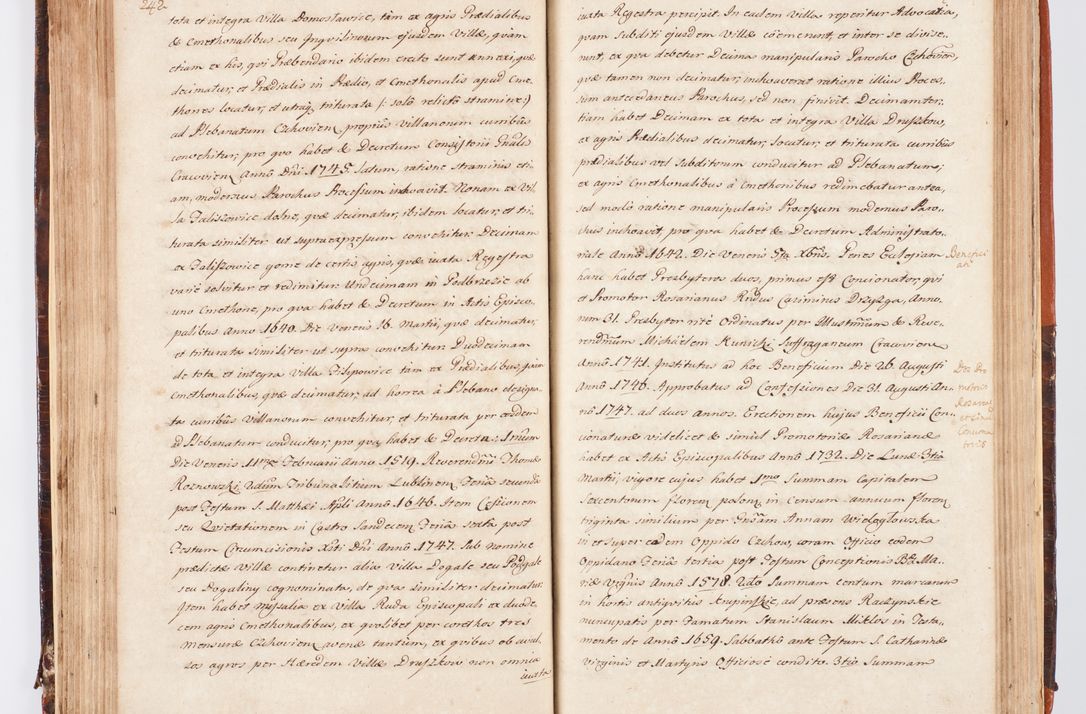 242
tota et integra Villa Domosławice, tàm ex agris Prædialibus
& Cmethonalibus seu Inqvilinorum ejusdem Villæ, qvàm
etiam ex his, qvi Præbendario ibidem erecto sunt annexi, qvæ
decimatur, et Prædialis in Prædio, et Cmethonalis apud Cme-
thones locatur, et utraq; triturata /: solô relictô stramine :/
ad Plebanatum Czchovien, propriis villanorum curribus
convehitur, pro qvo habet & Decretum Consistorii Gnalis
Cracovien Annô Dñi 1745. latum, ratione straminis eti-
am, modernus Parochus Processum inchoavit. Nonam ex Vil-
la Faliszowice dolne, qvæ decimatur, ibidem locatur, et tri-
turata similiter ut supra expressum convehitur. Decimam
ex Faliszowice gorne de certis agris, qvæ iuxta Regestra
variè solvitur et redimitur. Undecimam in Podbrzezie ab
uno Cmethone, pro qva habet & Decretum in Actis Episco-
palibus Anno 1640. Die Veneris 16. Martii, qvæ decimatur,
et triturata similiter ut supra convehitur. Duodecimam
de tota et integra Villa Filipowice tàm ex Prædialibus, qvàm
Cmethonalibus qvæ decimatur, ad horrea à Plebano designa-
ta curribus Villanorum convehitur, et triturata per eosdem
ad Plebanatum conducitur, pro qva habet & Decreta: 1mum
Die Veneris 11mo Februarii Anno 1519. Reverendiss Thomæ
Roznowszki, 2dum Tribunalitium Lublinen Feria secunda
post Festum S. Matthæi Apli Annô 1646. Item Cessionem
seu Qvietationem in Castro Sandecen Feria sexta post
Festum Circumcisionis Xsti Dñi Annô 1747. Sub nomine
prædictæ Villæ continetur alia Villa Dogale seu Podgale
seu Dogaliny cognominata, de qva similiter decimatur.
Item habet missalia ex Villa Ruda Episcopali ex duode-
cem agris Cmethonalibus, ex qvolibet per corethos tres
mensuræ Czchovien avenæ tantùm, ex qvibus ob avul-
sos agros per Hæredem Villæ Druszkow non omnia
iuxta
iuxta Regestra percipit. In eadem Villa reperitur Advocatia,
qvam Subditi ejusdem Villæ coëmerunt, et inter se divise-
runt, ex qva debetur Decima manipularis Parocho Czchovien,
qvæ tamen non decimatur, inchoaverat ratione illius Proces-
sum antecedaneus Parochus, sed non finivit. Decimamter-
tiam habet Decimam ex tota et integra Villa Druszkow,
ex agris Prædialibus decimatur, locatur, et triturata curribus
prædialibus vel Subditorum conducitur ad Plebanatum;
ex agris Cmethonalibus à Cmethonibus redimebatur antea,
sed modò ratione manipularis Processum modernus Paro-
chus inchoavit, pro qva habet & Decretum Administrato-
riale Annô 1642. Die Veneris 5ta Xbris. Penes Ecclesiam
hanc habet Presbyteros duos, primus est Concionator, qvi
et Promotor Rosarianus Rndus Casimirus Dryszga, Anno-
rum 31. Presbyter ritè Ordinatus per Illustrimum & Reve-
rendmum Michaëlem Kunicki Suffraganeum Cracovien
Annô 1741. Institutus ad hoc Beneficium Die 26. Augusti
Annô 1746. Approbatus ad Confessiones Die 31. Augusti An-
nô 1747. ad duos annos. Erectionem hujus Beneficii Con-
cionaturæ videlicet & simul Promotoriæ Rosarianæ
habet ex Actis Episcopalibus Annô 1732. Die Lunæ 3tia
Martii, vigore cujus habet 1mo Summam Capitalem
Sexcentorum floren polon, in censum annuum floren
triginta similium per Gnsam Annam Wielogłowska
in et super eodem Oppido Czchow, coram Officio eodem
Oppidano Feria tertia post Festum Conceptionis Bæ Ma-
riæ Vginis Annô 1578. 2do Summam centum marcarum
in hortis antiqvitùs Krupinskie, ad præsens Raczynskie
nuncupatis per Famatum Stanislaum Miklos in Testa-
mento de Annô 1659. Sabbathô ante Festum S. Catharinæ
Virginis et Martyris Officiosè condito. 3tio Summam
Benefici-
ati